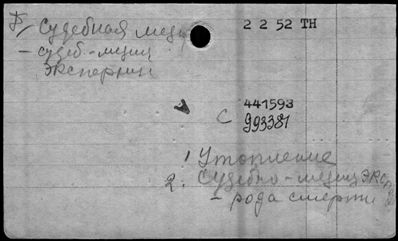 Судебная мед
2 2 52 TH
- судеб.-медиц
экспертиз
441593
С 993387
1 Утопление
2. Судебно-медиц экс
- рода смерти